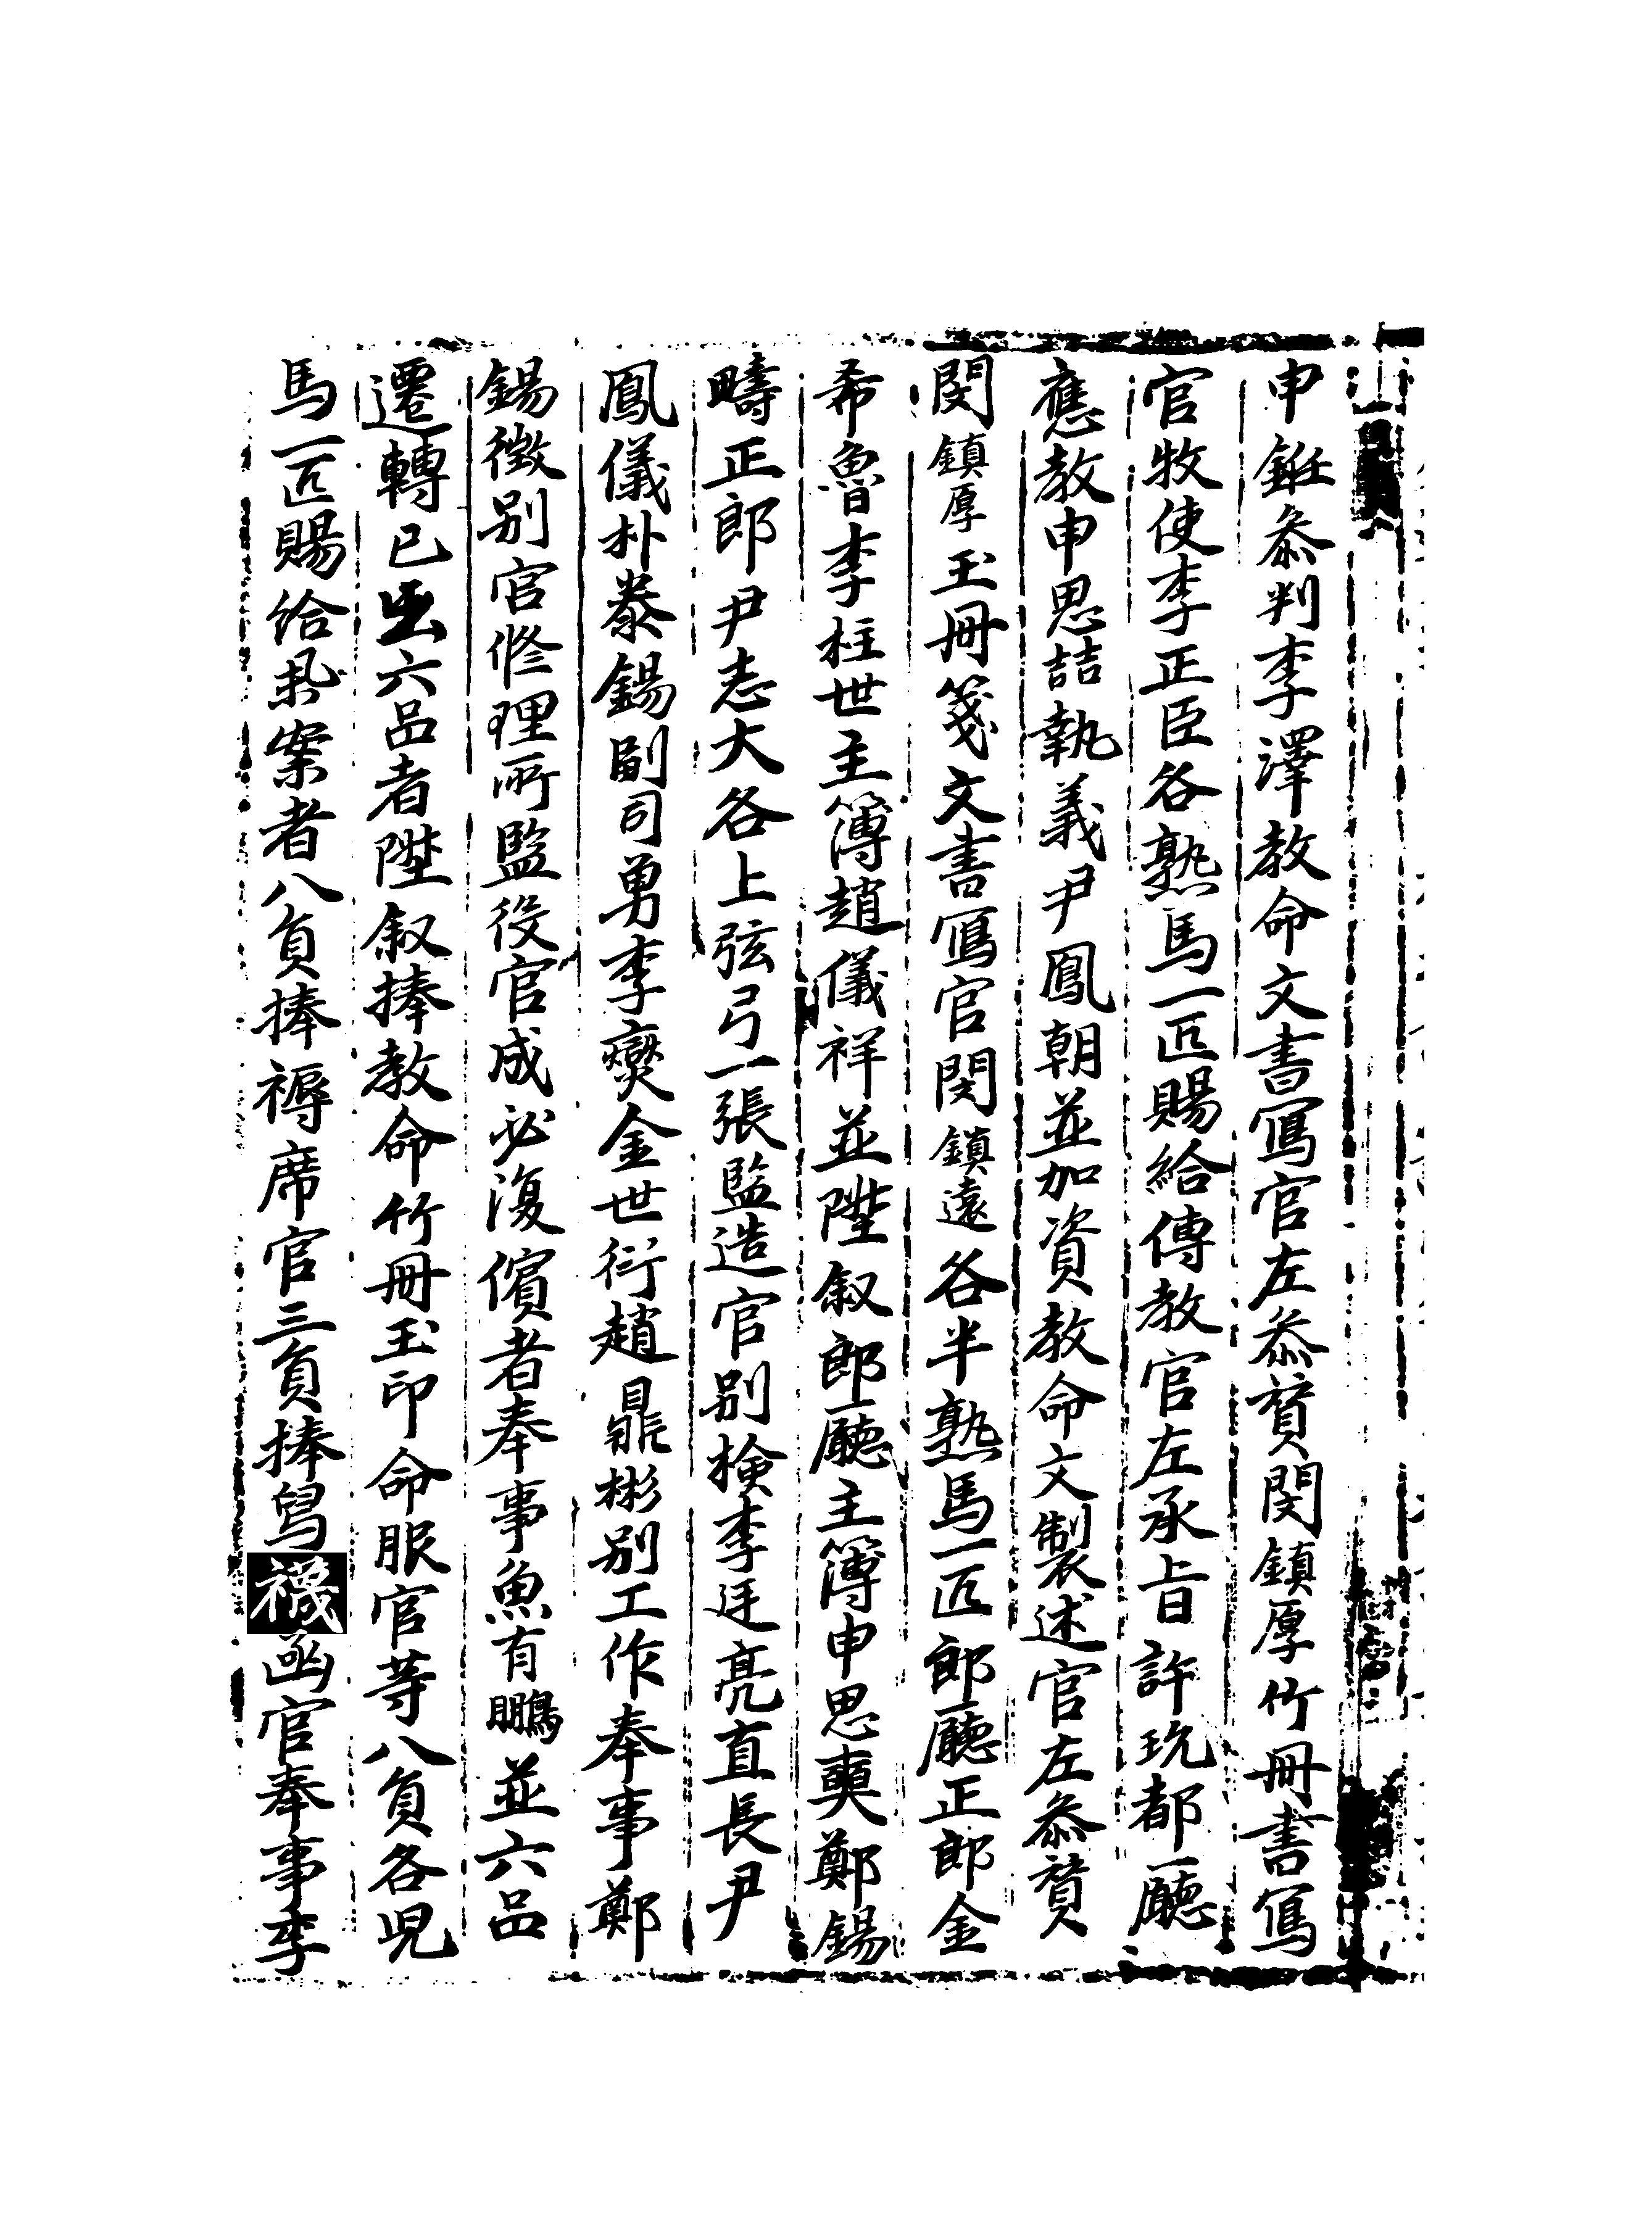 申銋叅判李澤教命文書寫官左叅贊閔鎮厚竹冊書寫
官牧使李正臣各熟馬一匹賜給傳教官左承旨許玧都廳
應教申思喆執義尹鳳朝並加資教命文製述官左叅贊
閔鎮厚玉冊箋文書寫官閔鎮遠各半熟馬一匹郎廳正郎金
希魯李柱世主簿趙儀祥並陞叙郎廳主簿申思奭鄭錫
疇正郎尹志大各上弦弓一張監造官别檢李廷亮直長尹
鳳儀朴泰錫副司勇李爕金世衍趙鼎彬别工作奉事鄭
錫徵别官修理所監役官成必復儐者奉事魚有鵬並六品
遷轉已出六品者陞叙捧教命竹冊玉印命服官等八負各児
馬一匹賜給擧案者八負捧褥席官三負捧舃襪函官奉事李